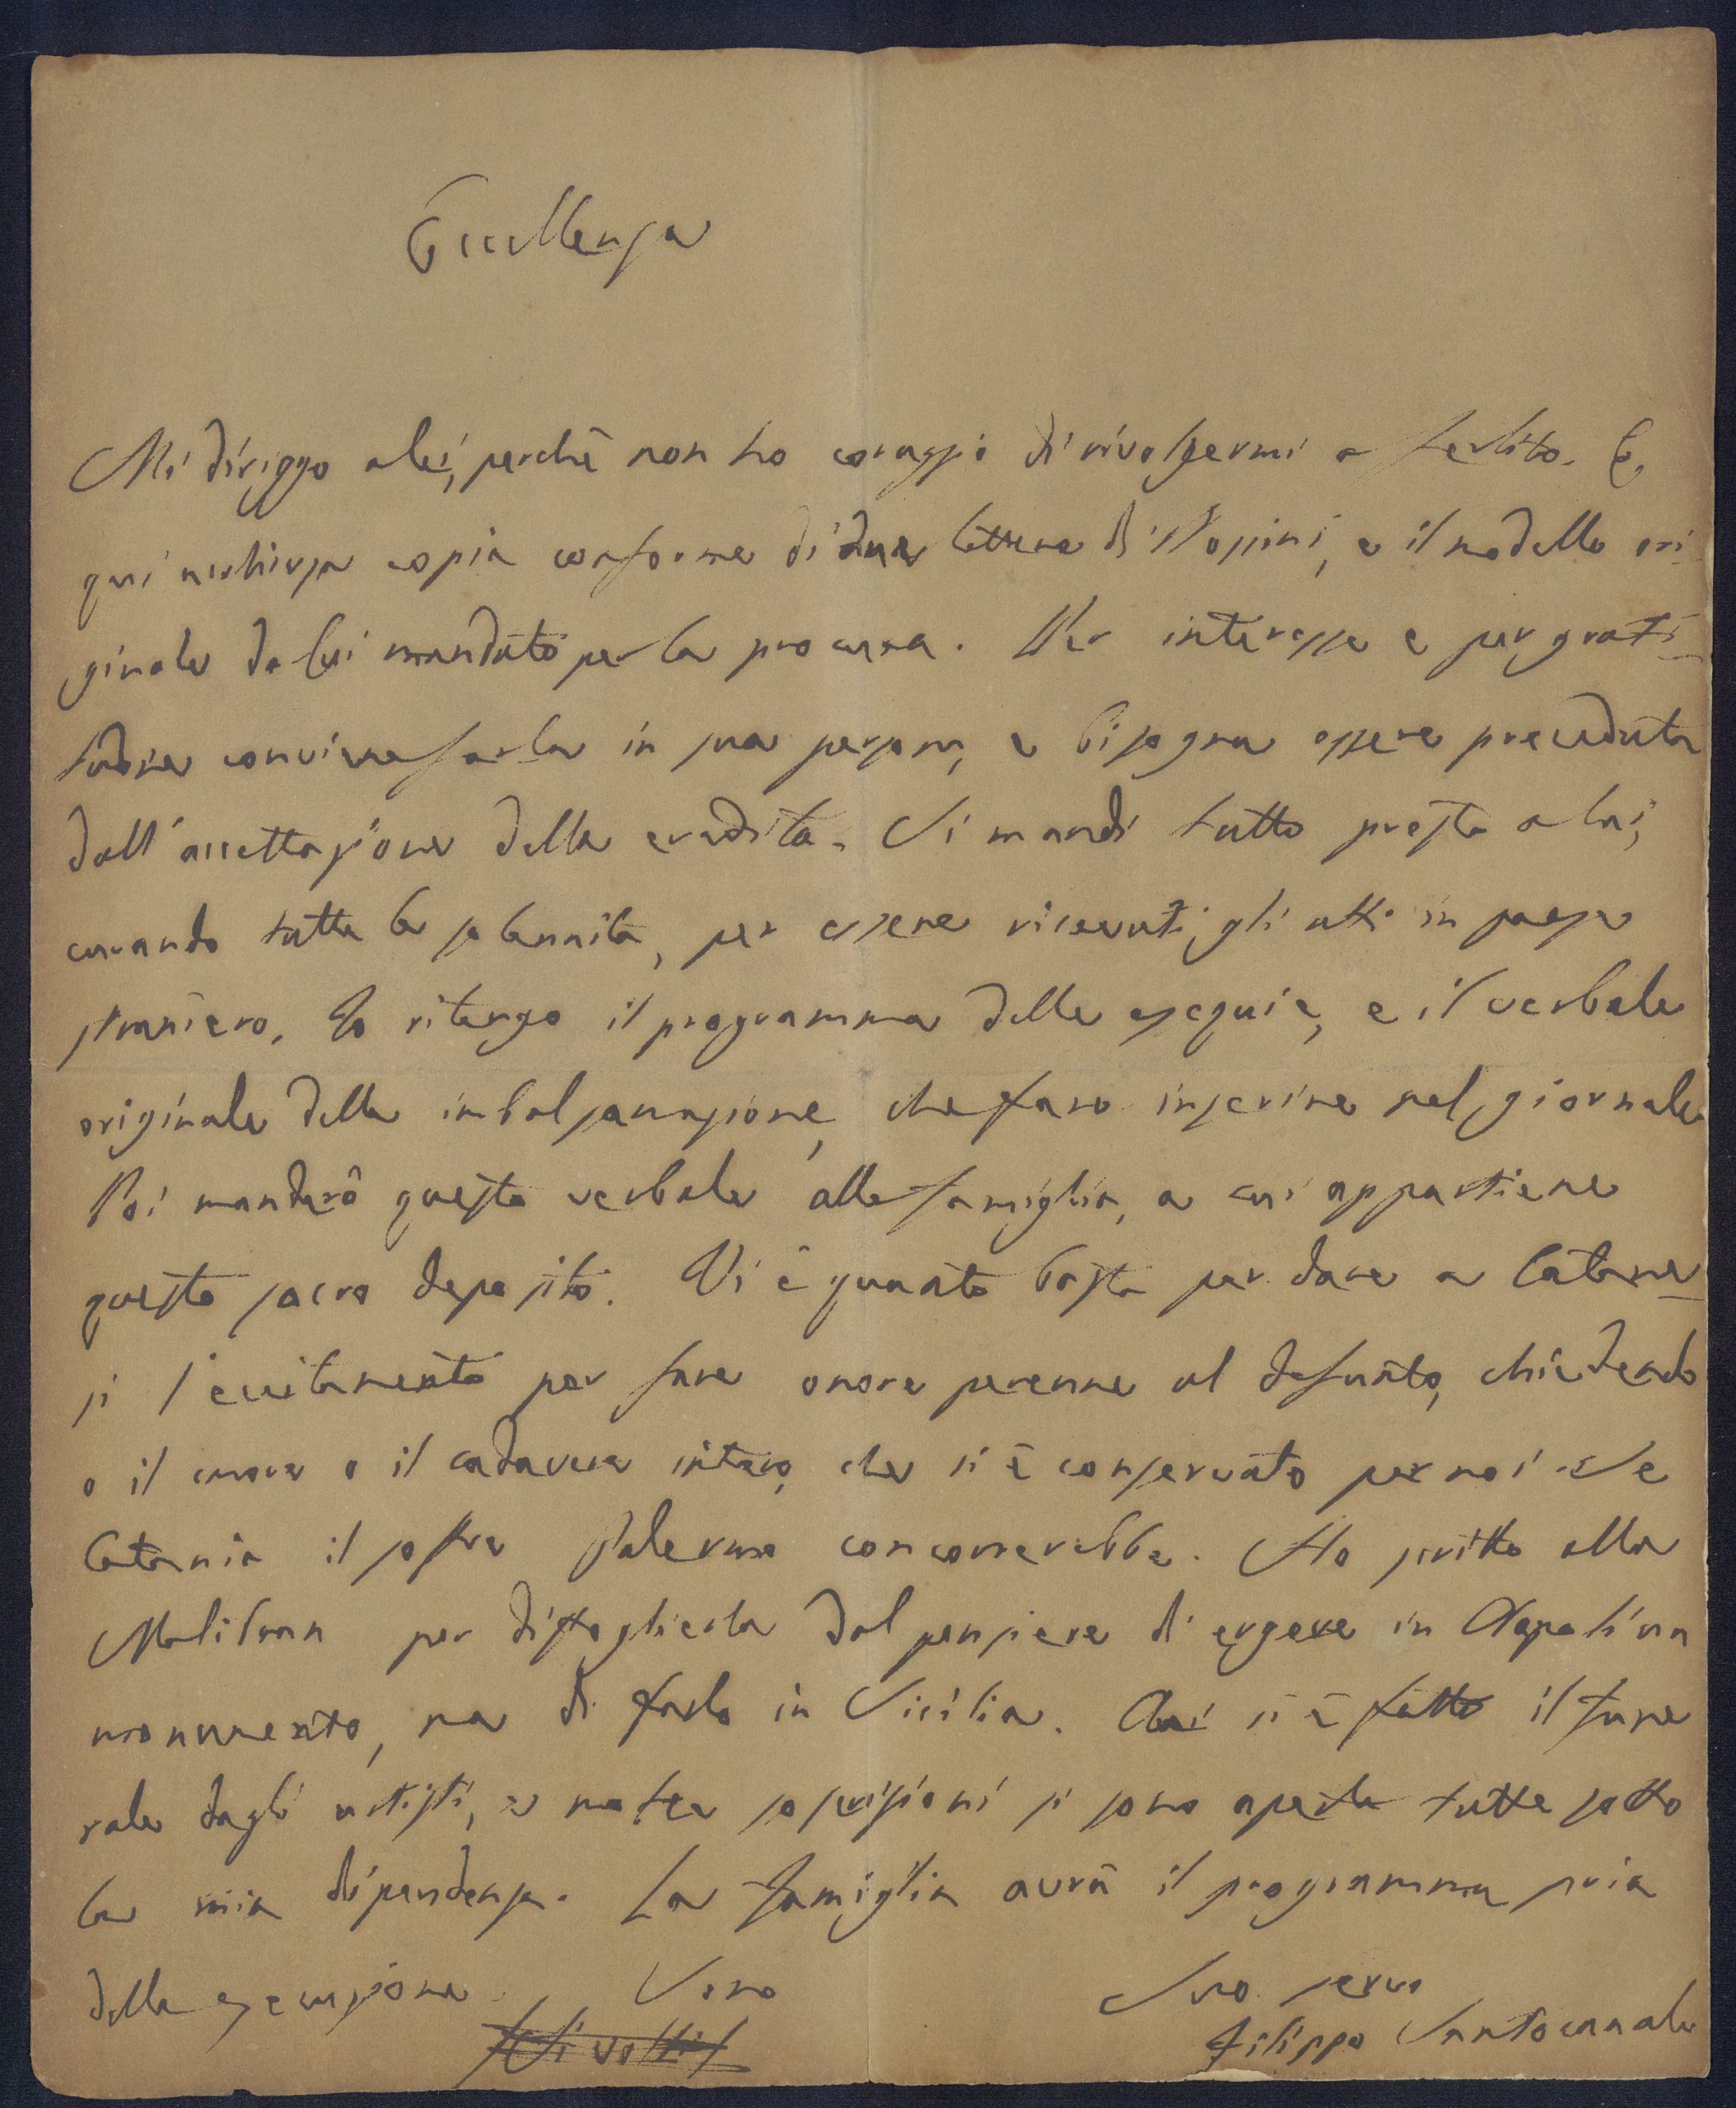 Eccellenza
Mi diriggo a lei, perchè non ho coraggio di rivolgermi a Ferlito. È
qui acchiusa copia conforme di due lettere di Rossini, e il modello ori-
ginale da lui mandato per la procura. Per interesse e per grati-
tudine conviene farla in sua persona, e bisogna essere preceduta
dall'accettazione della eredità. Si mandi tutto presto a lui,
curando tutte le solennità, per essere ricevuti gli atti in paese
straniero. Io ritengo il programma delle esequie, e il verbale
originale della imbalsamazione, che farò inserire nel giornale
Poi manderò questo verbale alla famiglia, a cui appartiene
questo sacro deposito. Vi è quanto basta per dare a Catane-
si l'eccitamento per fare onore perenne al defunto, chiedendo
o il cuore o il cadavere intero, che si è conservato per noi. Se
Catania il soffre Palermo concorrerebbe. Ho scritto alla
Malibran per distoglierla dal pensiere di ergere in Napoli un
monumento, ma di farlo in Sicilia. Qui si è fatto il fune
rale dagli artisti, e soscrizioni si sono aperte tutte sotto
la mia dipendenza. La famiglia avrà il programma pria
della esecuzione. Sono
Suo servo
Filippo Santocanale
Si volti